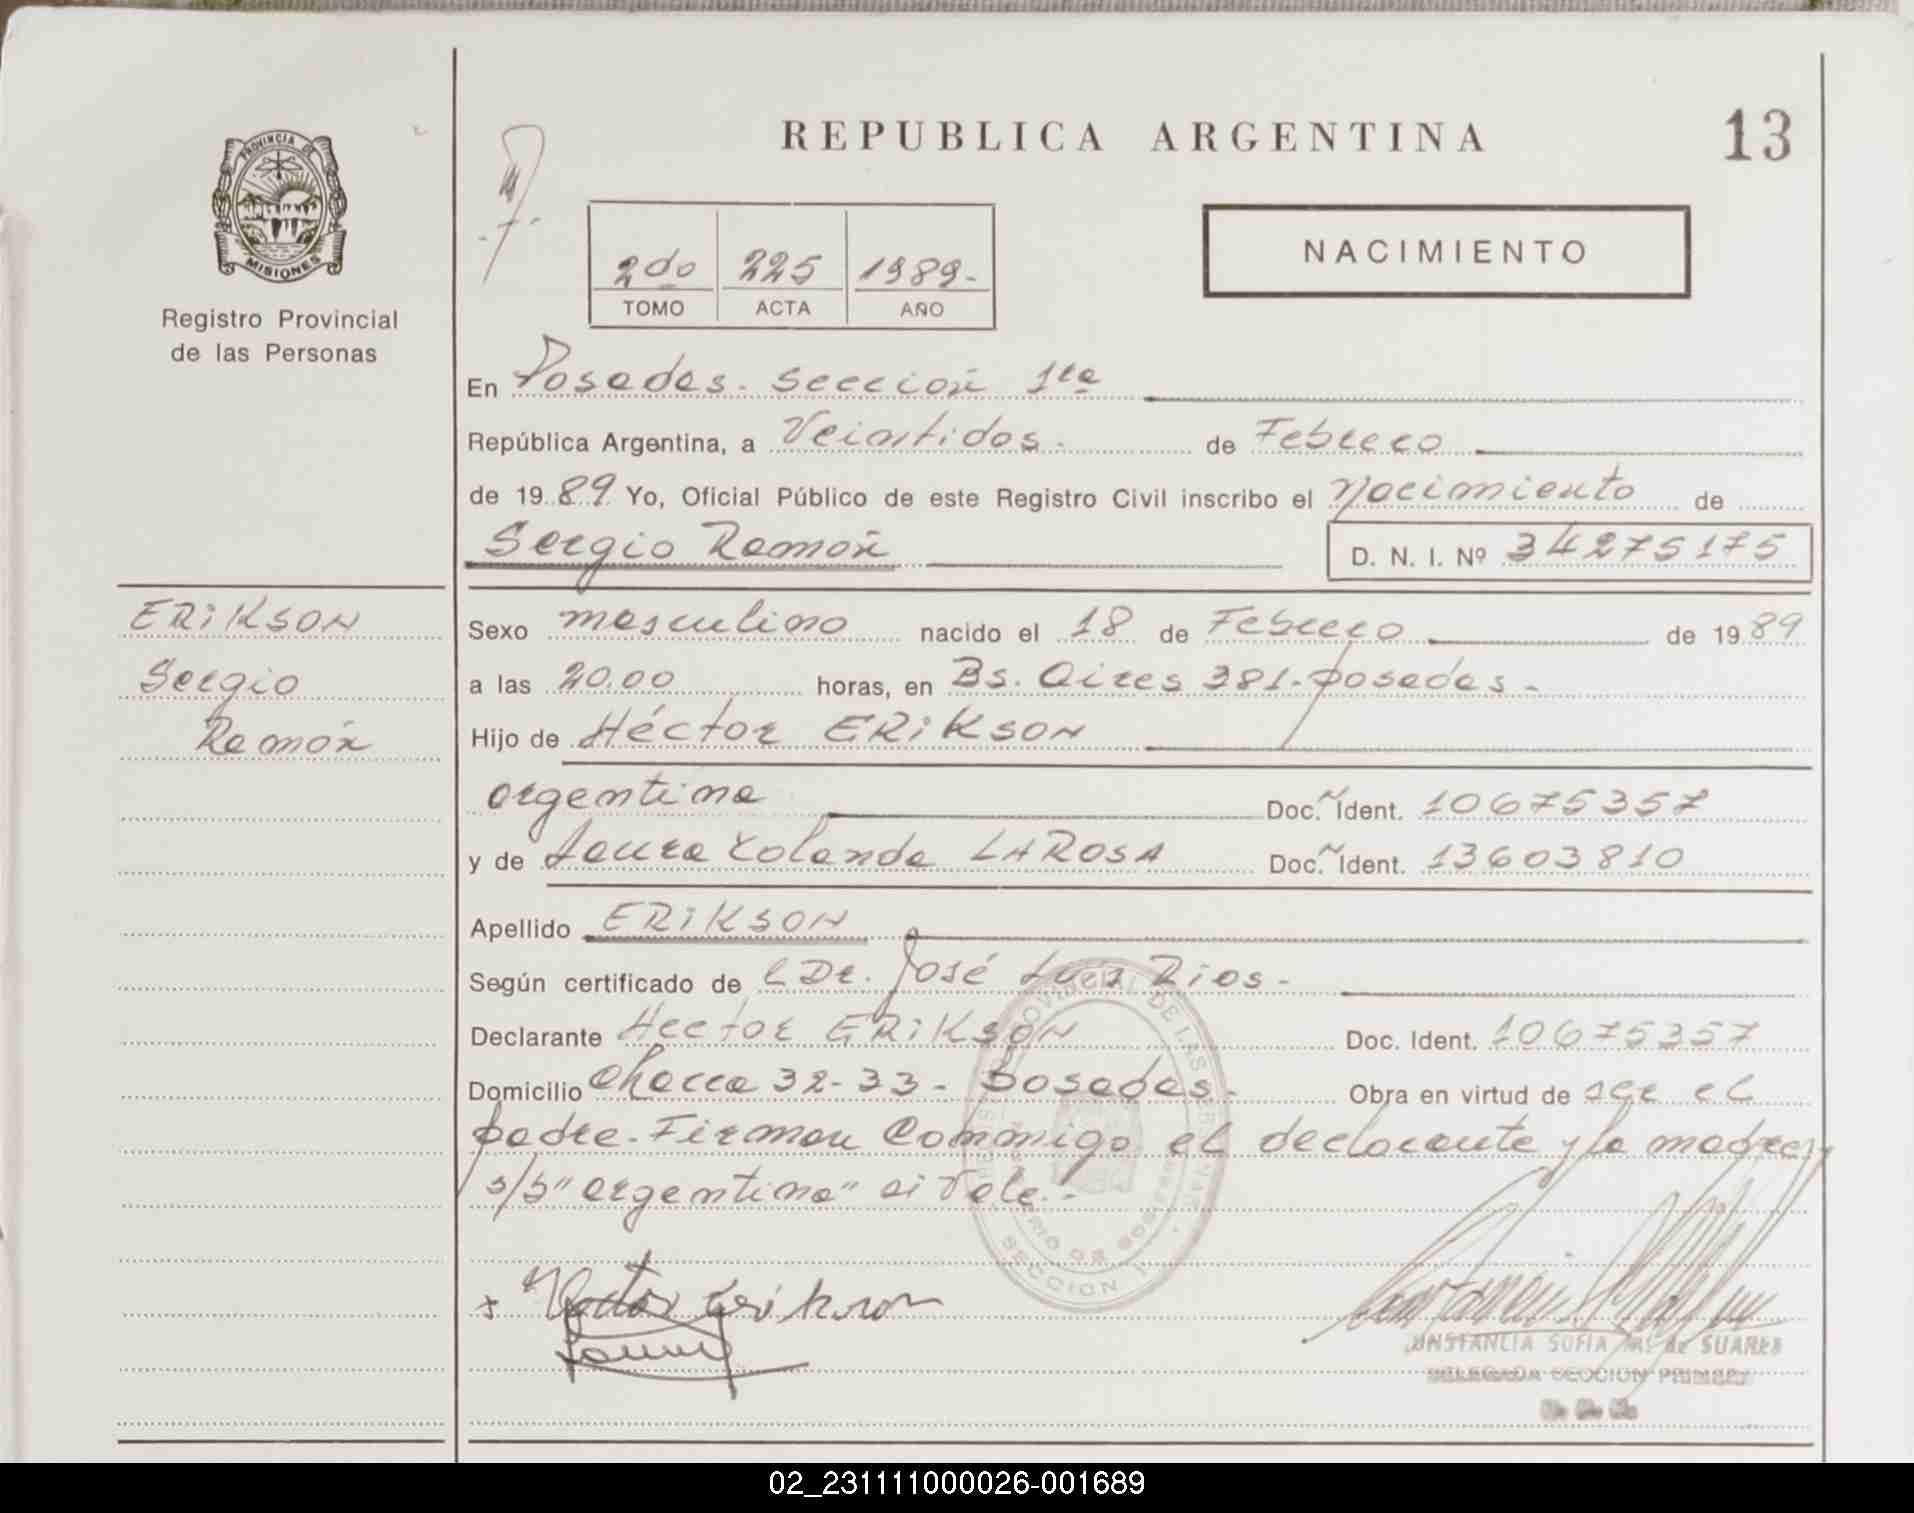 REPUBLICA ARGENTINA
13
PROVINCIA DE
MISIONES
Registro Provincial
de las Personas
2do 225 1989-
TOMO ACTA AÑO
NACIMIENTO
En Posadas. sección 1ra
República Argentina, a Veintidos.- de Febrero
de 1989 Yo, Oficial Público de este Registro Civil inscribo el nacimiento de
Sergio Ramón D. N. I. Nº 34275175
ERiKSON
Sergio
Ramón
Sexo masculino nacido el 18 de Febrero de 1989
a las 20.00 horas, en Bs. Aires 381-posadas.-
Hijo de Héctor ERiKSON
argentina Doc. Ident. 10675357
y de Laura Yolanda LAROSA Doc. Ident. 13603810
Apellido ERiKSON
Según certificado de l Dr. José Luis Rios.-
Declarante Hector ERiKSON Doc. Ident. 10675357
Domicilio Chacra 32-33- Posadas.- Obra en virtud de ser el
padre.-Firman Conmigo el declarante y la madre,
s/s "argentina" si vale.-
SECCION 1
Hector Erikson
CONSTANCIA SOFIA de SUAREZ
DELEGADA SECCION PRIMERA
02_231111000026-001689